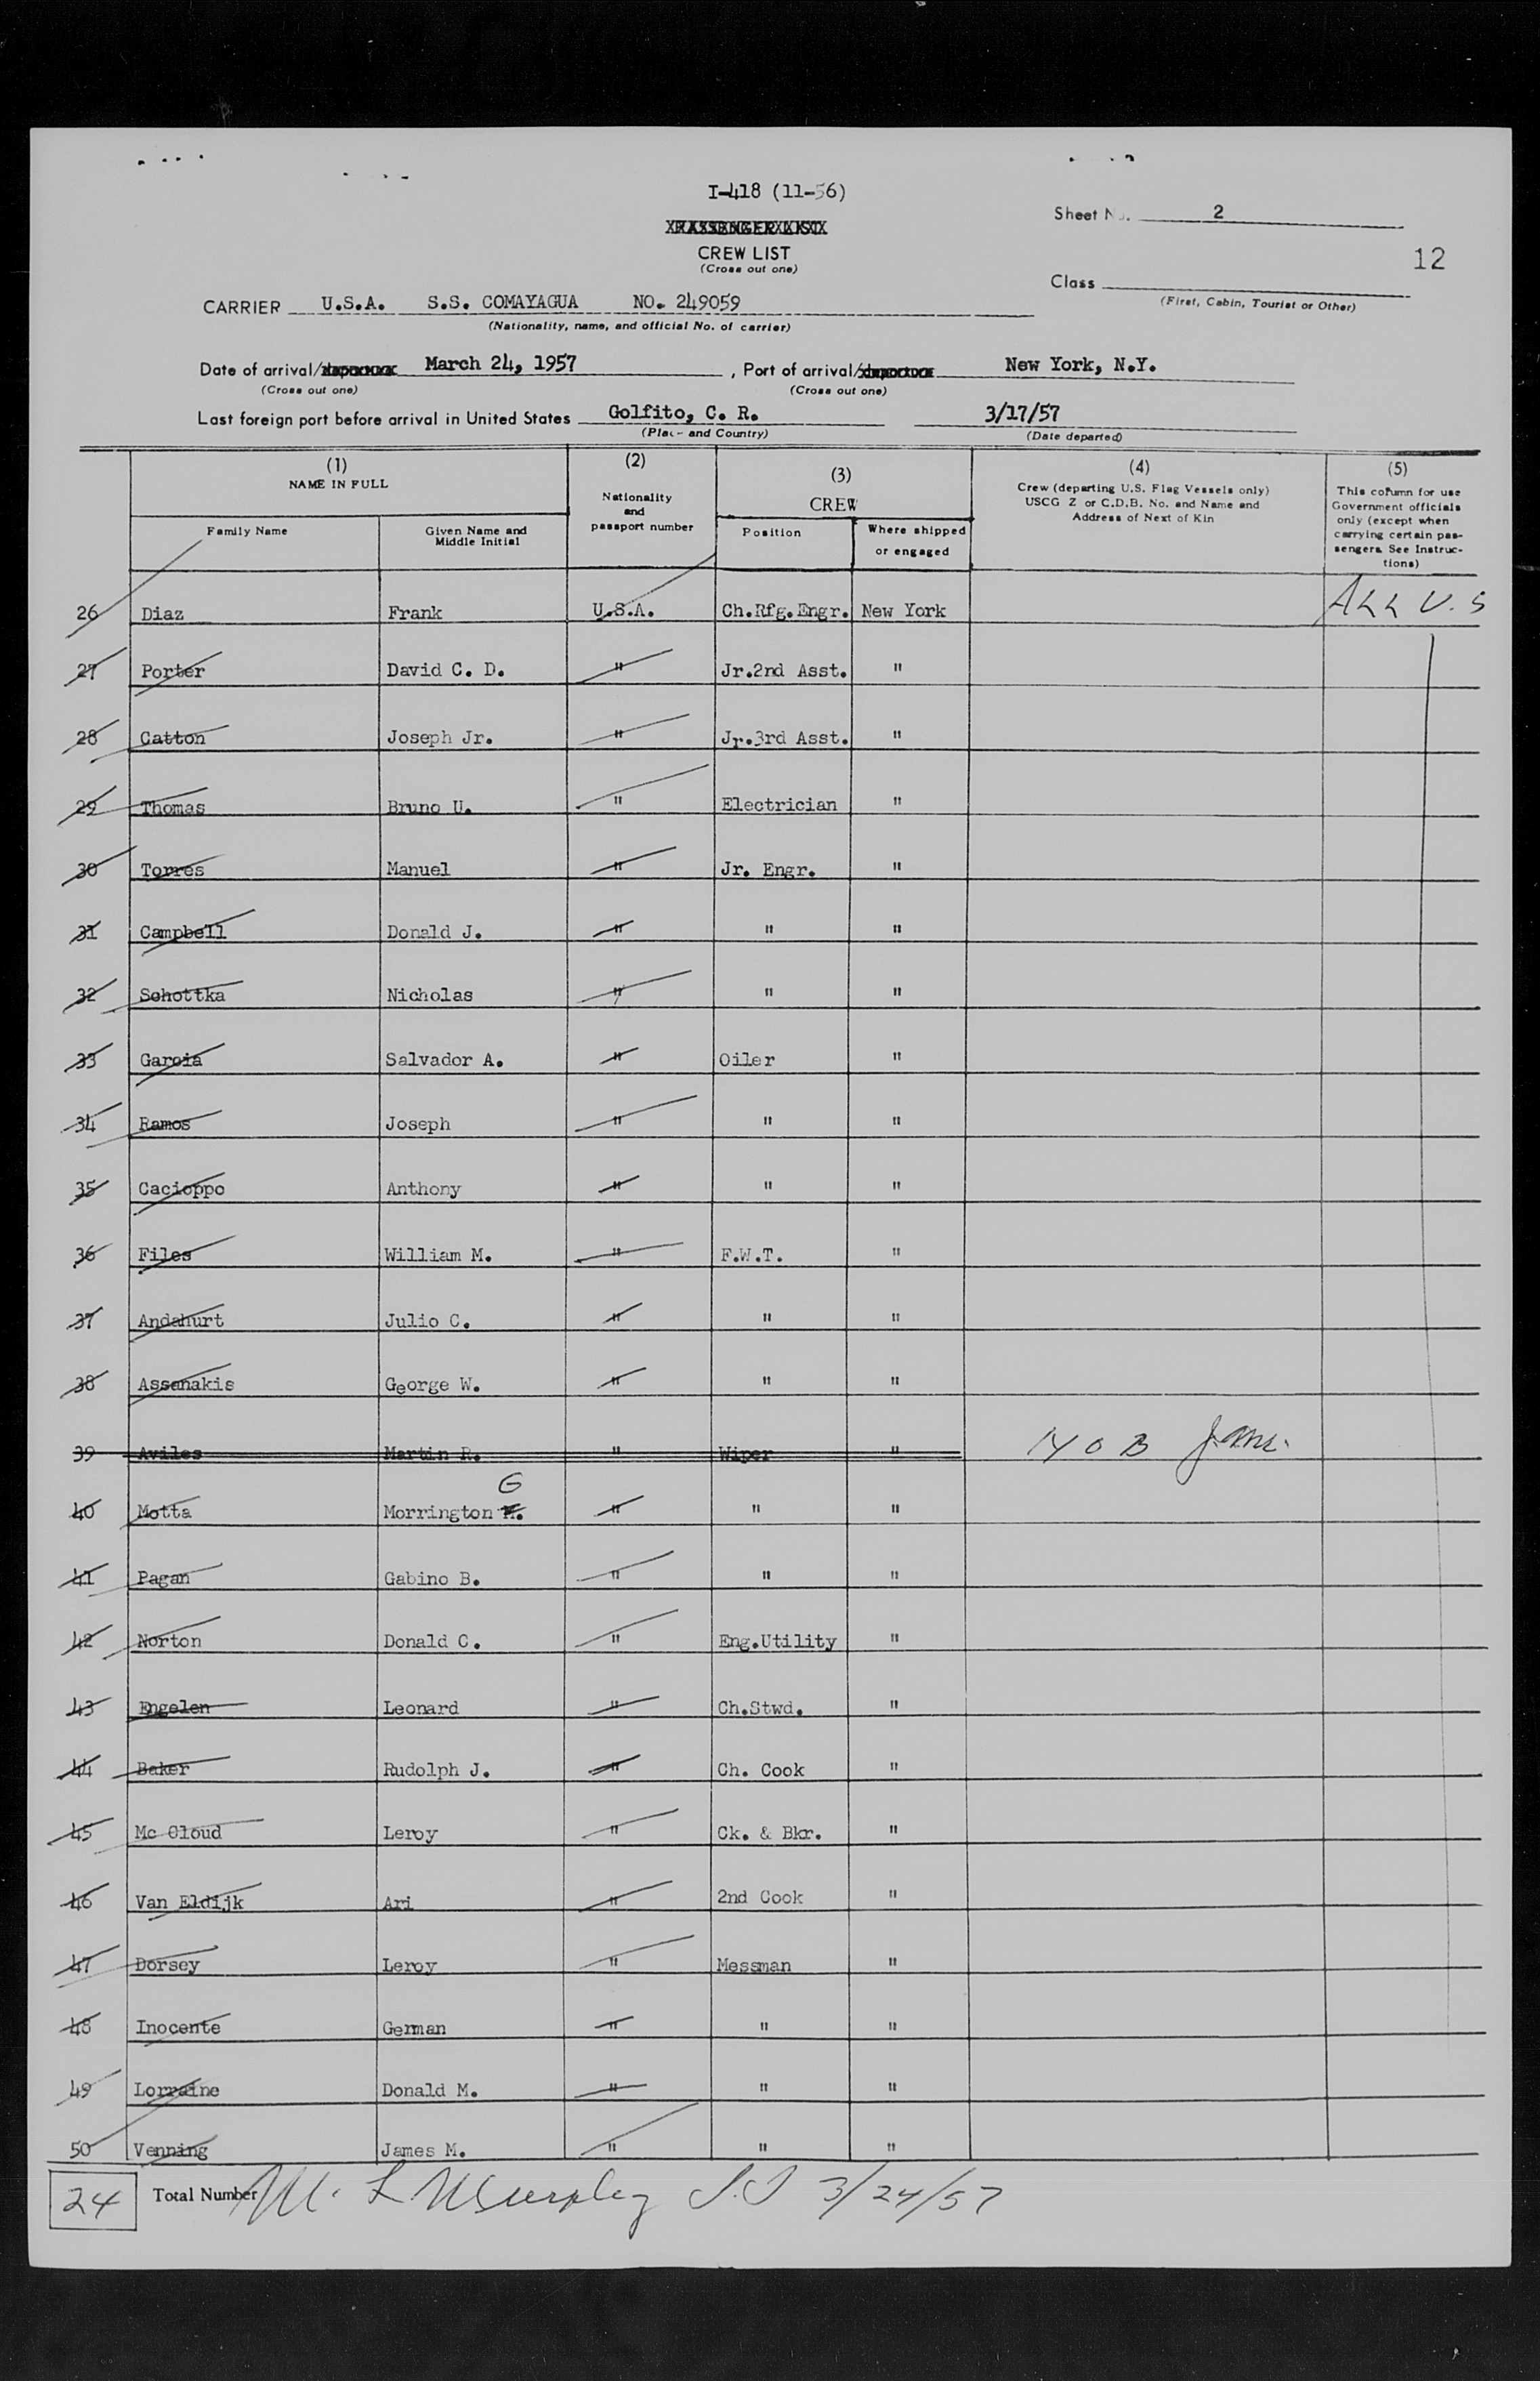 I-418 (11-56)
Sheet No. 2
PASSENGER LIST
CREW LIST
(Cross out one)
12
Class
(First, Cabin, Tourist or Other)
CARRIER U.S.A. S.S. COMAYAGUA NO. 249059
(Nationality, name, and official No. of carrier)
Date of arrival/ March 24, 1957, Port of arrival/ New York, N.Y.
(Cross out one) (Cross out one)
Last foreign port before arrival in United States Golfito, C. R. 3/17/57
(Place and Country) (Date departed)
(1) (2) (3) (4) (5)
NAME IN FULL
Family Name
Given Name and
Middle Initial
Nationality
and
passport number
CREW
Position
Where shipped
or engaged
Crew (departing U.S. Flag Vessels only)
USCG Z or C.D.B. No. and Name and
Address of Next of Kin
This column for use
Government officials
only (except when
carrying certain pas-
sengers. See Instruc-
tions)
26 Diaz Frank U.S.A. Ch.Rfg.Engr. New York ALL U.S
27 Porter David C. D. " Jr.2nd Asst. "
28 Catton Joseph Jr. " Jr.3rd Asst. "
29 Thomas Bruno U. " Electrician "
30 Torres Manuel " Jr. Engr. "
31 Campbell Donald J. " " "
32 Schottka Nicholas " " "
33 Garcia Salvador A. " Oiler "
34 Ramos Joseph " " "
35 Cacioppo Anthony " " "
36 Files William M. " F.W.T. "
37 Andahurt Julio C. " " "
38 Assanakis George W. " " "
39 Aviles Martin R. " Wiper " N O B
40 Motta Morrington G " " "
41 Pagan Gabino B. " " "
42 Norton Donald C. " Eng.Utility "
43 Engelen Leonard " Ch.Stwd. "
44 Baker Rudolph J. " Ch. Cook "
45 Mc Cloud Leroy " Ck. & Bkr. "
46 Van Eldijk Ari " 2nd Cook "
47 Dorsey Leroy " Messman "
48 Inocente German " " "
49 Lorraine Donald M. " " "
50 Venning James M. " " "
24 Total Number M. L Murphy 3/24/57